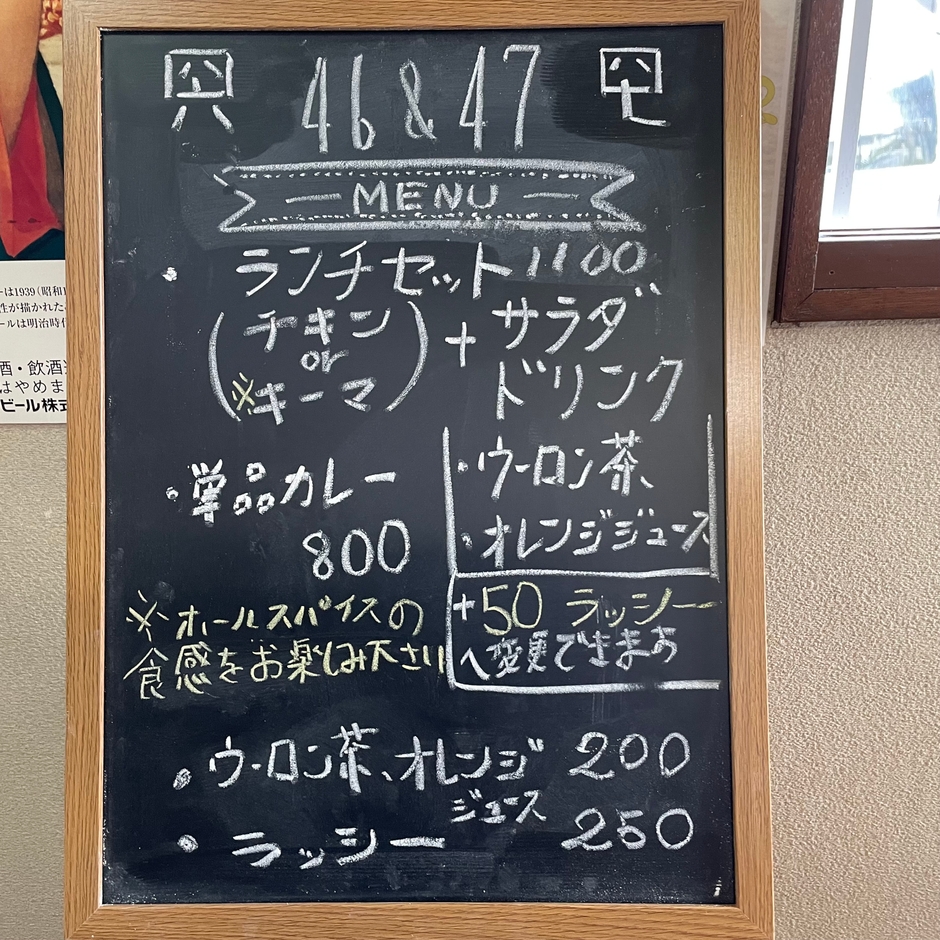 46 & 47
MENU
・ランチセット 1100
(チキン or ※キーマ) + サラダ ドリンク
・ウーロン茶、
・オレンジジュース
+50 ラッシー
へ変更できます
・単品カレー
800
※ホールスパイスの
食感をお楽しみ下さい
・ウーロン茶、オレンジジュース 200
・ラッシー 250
酒・飲酒
はやめま
ビール株式